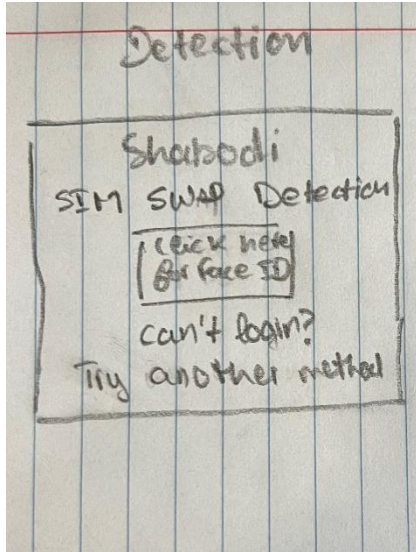 Detection
Shabodi
SIM SWAP Detection
click here
for face ID
can't login?
Try another method